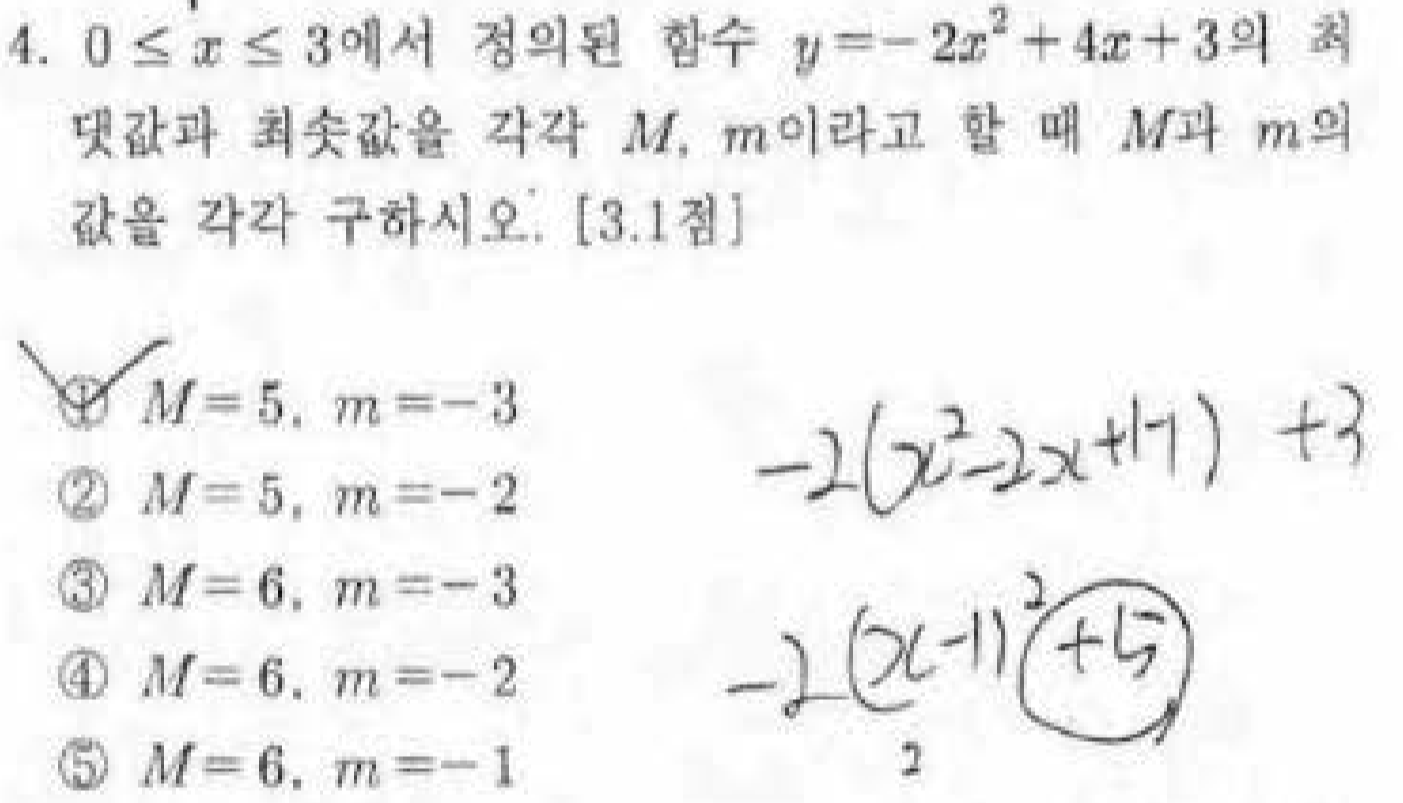 4. 0 ≤ x ≤ 3에서 정의된 함수 y=-2x²+4x+3의 최
댓값과 최솟값을 각각 M, m이라고 할 때 M과 m의
값을 각각 구하시오. [3.1점]
① M=5, m=-3
② M=5, m=-2
③ M=6, m=-3
④ M=6, m=-2
⑤ M=6, m=-1
-2(x²-2x+1-1) +3
-2(x-1)²+5
2